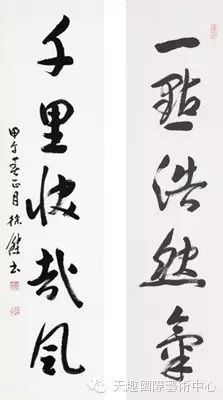 一點浩然氣
千里快哉风
甲午春正月徐傑书
天趣國際藝術中心